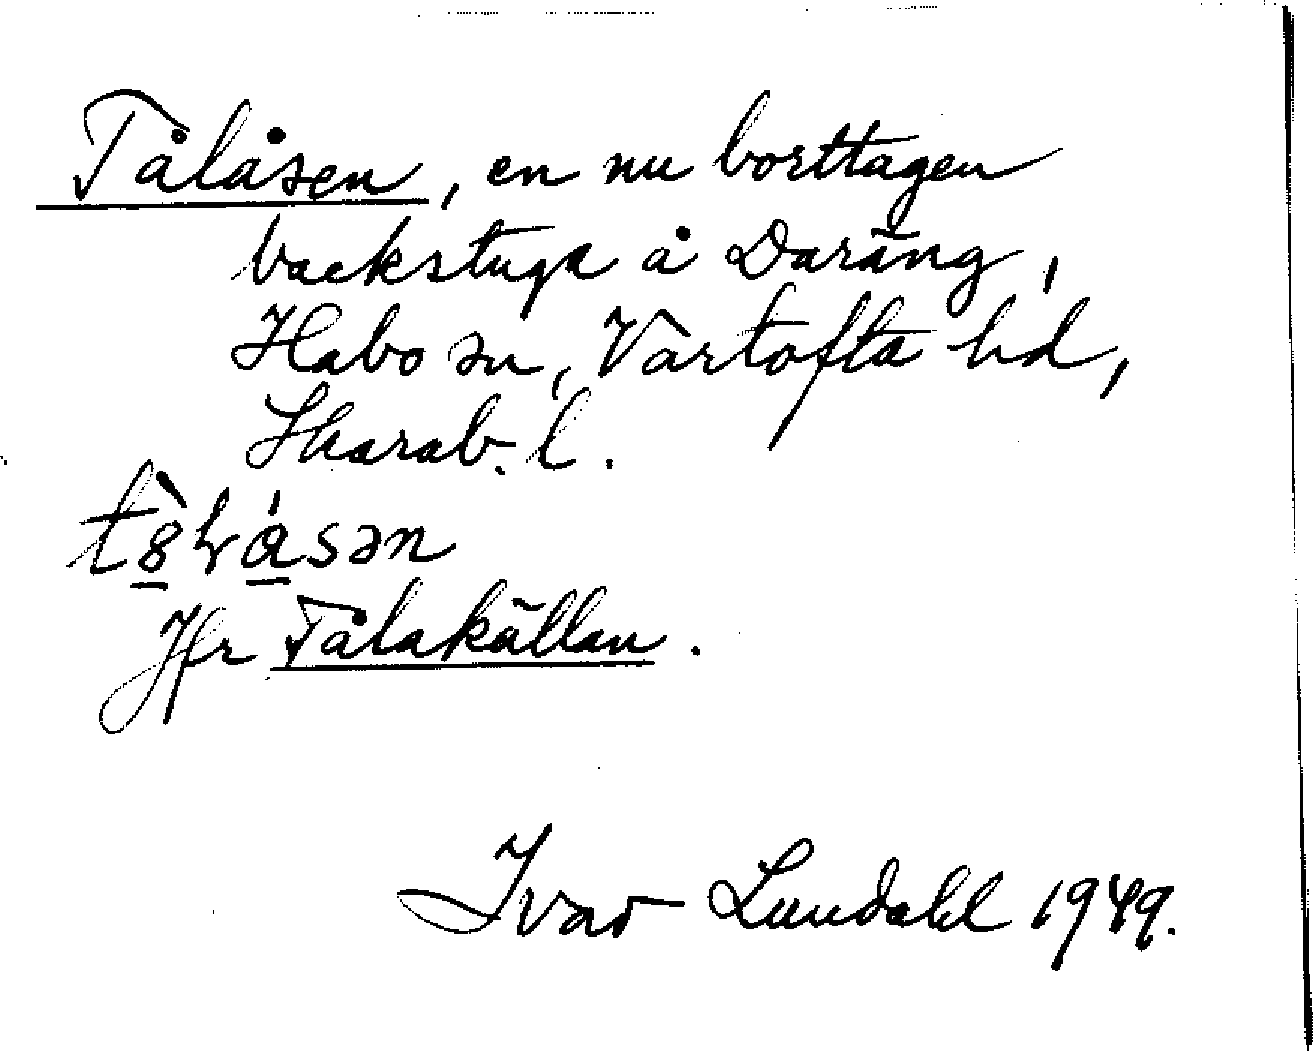 Tålåsen, en nu borttagen
backstuga å Daräng,
Habo sn, Vartofta hd,
Skarab. l.
Jfr Tålakällan.
Ivar Lundahl 1949.